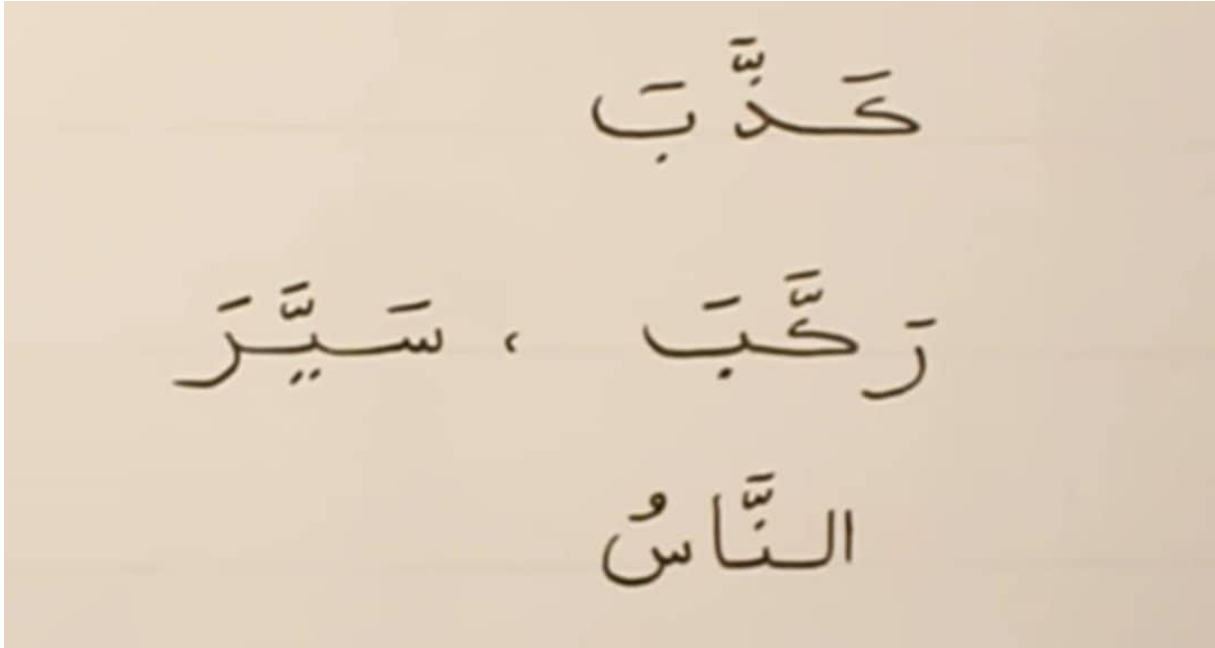 كَذَّبَ
رَكَّبَ ، سَيَّرَ
النَّاسُ